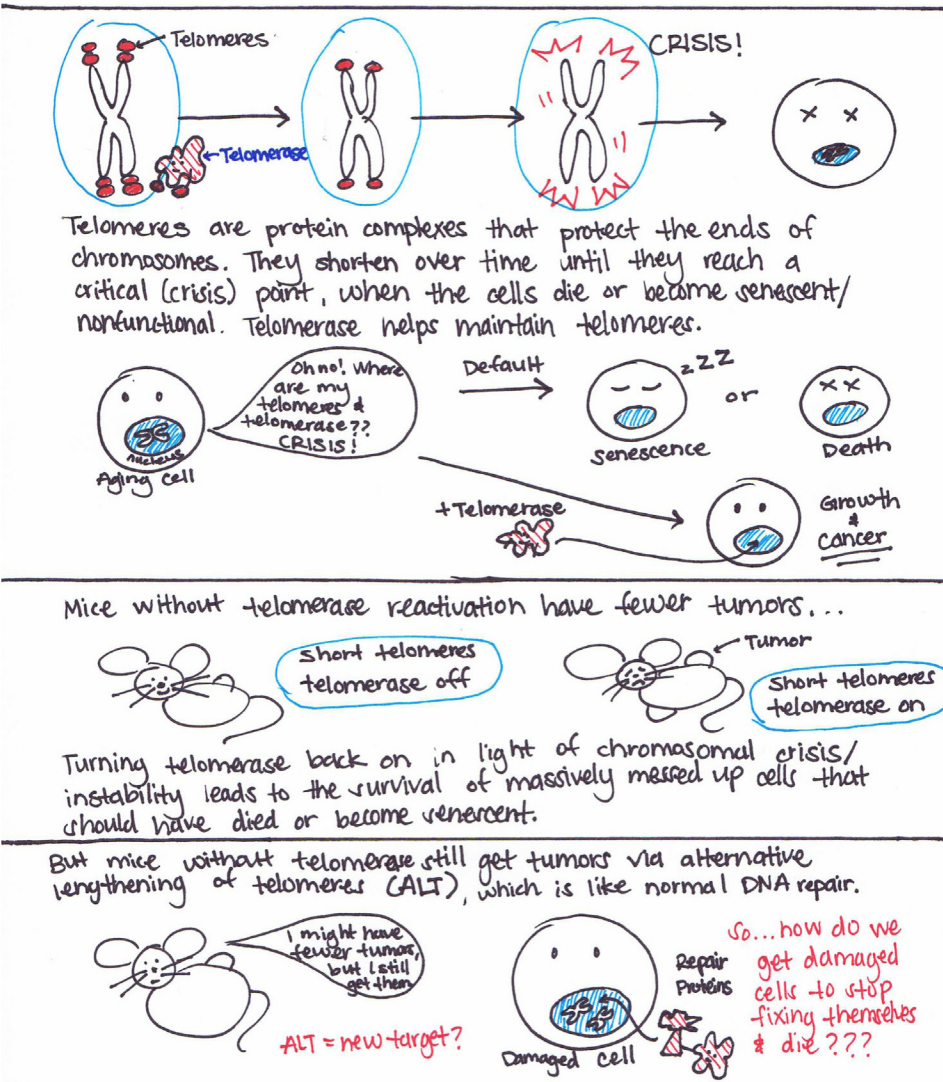 Telomeres
CRISIS!
Telomerase
Telomeres are protein complexes that protect the ends of
chromosomes. They shorten over time until they reach a
critical (crisis) point, when the cells die or become senescent/
nonfunctional. Telomerase helps maintain telomeres.
Oh no! Where
are my
telomeres &
telomerase??
CRISIS!
nucleus
Aging cell
Default
zZZ
senescence
or
Death
+Telomerase
Growth
&
cancer
Mice without telomerase reactivation have fewer tumors...
short telomeres
telomerase off
Tumor
short telomeres
telomerase on
Turning telomerase back on in light of chromosomal crisis/
instability leads to the survival of massively messed up cells that
should have died or become senescent.
But mice without telomerase still get tumors via alternative
lengthening of telomeres (ALT), which is like normal DNA repair.
I might have
fewer tumors,
but I still
get them
ALT = new target?
Damaged cell
Repair
Proteins
So...how do we
get damaged
cells to stop
fixing themselves
& die???